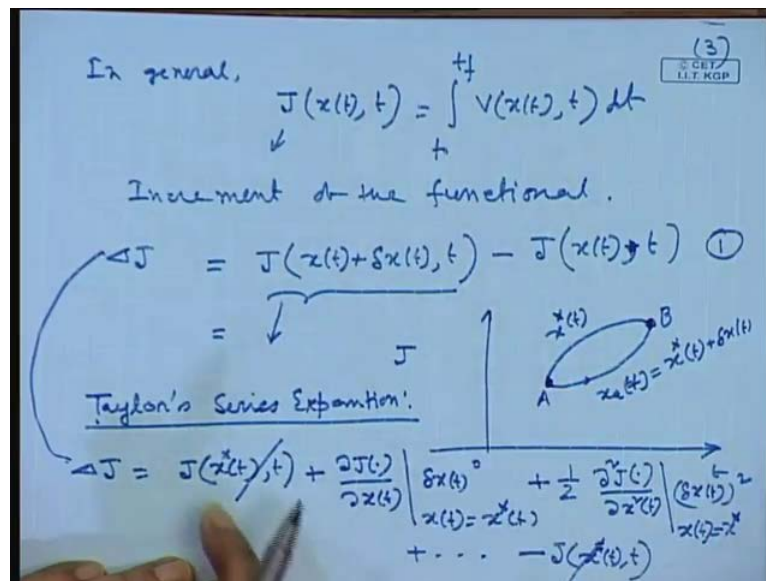 (3)
© CET
I.I.T. KGP
In general,
J(x(t), t) = ∫ₜ^{tf} V(x(t), t) dt
Increment of the functional.
ΔJ = J(x(t)+δx(t), t) − J(x(t), t) ①
= J
x*(t)
B
A
xₐ(t) = x*(t) + δx(t)
t
Taylor's Series Expantion:
ΔJ = J(x*(t), t) + ∂J(·)/∂x(t) | x(t)=x*(t) δx(t) + 1/2 ∂²J(·)/∂x²(t) | x(t)=x* (δx(t))²
+ ··· − J(x*(t), t)